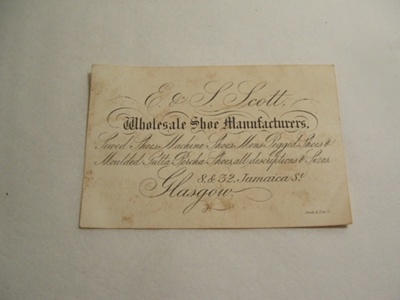 E. & S. Scott,
Wholesale Shoe Manufacturers.
Sewed Shoes, Machine Shoes, Mens Pegged Shoes &
Moulded Gutta Percha Shoes, all descriptions & Sizes
8. & 32. Jamaica St.
Glasgow.